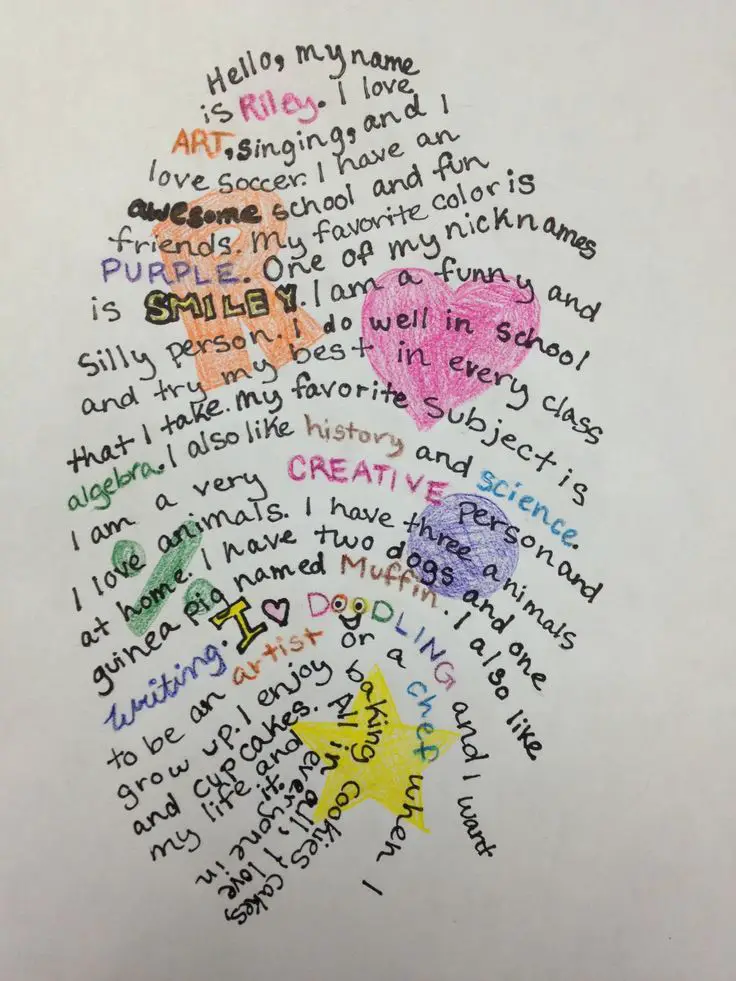 Hello, my name
is Riley. I love
ART, singing, and I
love soccer. I have an
awesome school and fun
friends. My favorite color is
PURPLE. One of my nicknames
is SMILEY. I am a funny and
silly person. I do well in school
and try my best in every class
that I take. My favorite subject is
algebra. I also like history and science.
I am a very CREATIVE person and
I love animals. I have three animals
at home. I have two dogs and one
guinea pig named Muffin. I also like
writing. I ♥ DOODLING and I want
to be an artist or a chef when I
grow up. I enjoy baking cookies, cakes,
and cupcakes. All in all, I love
my life and everyone in
it.
R